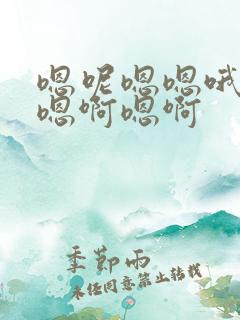 嗯呢嗯嗯哦
嗯啊嗯啊
季节雨
未经同意禁止转载